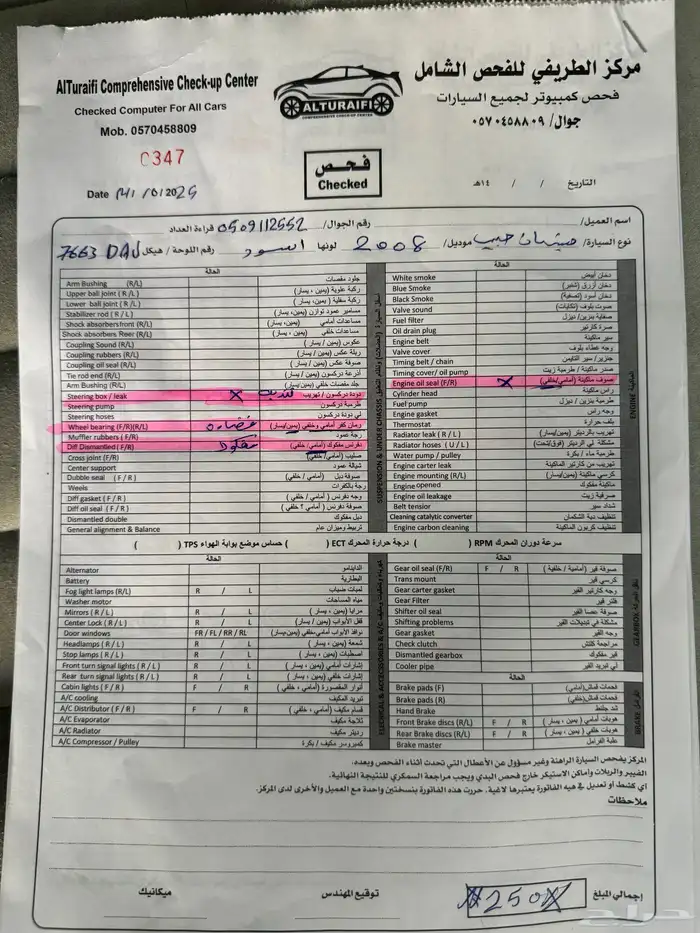 AlTuraifi Comprehensive Check-up Center
مركز الطريفي للفحص الشامل
Checked Computer For All Cars
فحص كمبيوتر لجميع السيارات
Mob. 0570458809
جوال/ ٠٥٧٠٤٥٨٨٠٩
ALTURAIFI
COMPREHENSIVE CHECK-UP CENTER
0347
فحص
Checked
Date 14/10/2025
التاريخ / / ١٤هـ
اسم العميل/ رقم الجوال/ 0509112552 قراءة العداد
نوع السيارة/ جيب موديل/ 2008 لونها اسود رقم اللوحة / هيكل 7663 DAJ
الحالة
Arm Bushing (R/L) جلود مقصات
Upper ball joint ( R / L ) ركبة علوية (يمين ، يسار)
Lower ball joint ( R/L ) ركبة سفلية ( يمين ، يسار)
Stabilizer rod ( R / L ) مسامير عمود توازن (يمين، يسار)
Shock absorbersfront (R/L) مساعدات أمامي (يمين، يسار)
Shock absorbers Reer (R/L) مساعدات خلفي
Coupling Sound (R/L) عكوس (يمين / يسار)
Coupling rubbers (R/L) ربلة عكس (يمين / يسار)
Coupling oil seal (R/L)
Tie rod end (R/L) أذرعة دركسون (يمين/ يسار)
Arm Bushing (R/L) جلد مقصات خلفي (يمين/يسار)
Steering box / leak X تهريب دودة دركسون / تهريب
Steering pump طرمبة دركسون
Steering hoses لي دودة دركسون
Wheel bearing (F/R)(R/L) رمان كفر أمامي وخلفي (يمين/يسار)
Muffler rubbers ( F/R ) رجة عمود
Diff Dismantled ( F/R ) مفكوك دفرنس مفكوك (أمامي/ خلفي)
Cross joint (F/R) صليب (أمامي/ خلفي)
Center support شيالة عمود
Dubble seal ( F / R ) صوفة دبل (أمامي / خلفي)
Weels رجة بالكفرات
Diff gasket ( F / R ) وجه دفرنس (أمامي / خلفي)
Diff oil seal ( F / R )
Dismantled double دبل مفكوك
General alignment & Balance تربيط وميزان عام
SUSPENSION & UNDER CHASSIS
الحالة
White smoke دخان أبيض
Blue Smoke دخان أزرق (تخبير)
Black Smoke دخان أسود (تصفية)
Valve sound صوت بلوف (تكايات)
Fuel filter صفاية بنزين/ ديزل
Oil drain plug صرة كارتير
Engine belt سير ماكينة
Valve cover وجه غطاء بلوف
Timing belt / chain جنزير/ سير التايمن
Timing cover/ oil pump صدر ماكينة/ طرمبة زيت
Engine oil seal (F/R) X صوف ماكينة (أمامي/خلفي)
Cylinder head وجه راس
Fuel pump طرمبة بنزين / ديزل
Engine gasket وجه راس
Thermostat بلف حرارة
Radiator leak ( R / L ) تهريب بالرديتر (يمين/يسار)
Radiator hoses ( U / L ) مشكلة لي الرديتر (فوق/تحت)
Water pump / pulley طرمبة ماء / بكرة
Engine carter leak تهريب من كارتير الماكينة
Engine mounting (R/L) كرسي ماكينة (يمين/يسار)
Engine opened ماكينة مفكوك
Engine oil leakage صرفية زيت
Belt tensior شداد سير
Cleaning catalytic converter تنظيف دبة الشكمان
Engine carbon cleaning تنظيف كربون الماكينة
ENGINE الماكينة
سرعة دوران المحرك RPM ( ) درجة حرارة المحرك ECT ( ) حساس موضع بوابة الهواء TPS ( )
الحالة
Alternator الداينامو
Battery البطارية
Fog light lamps (R/L) R / L لمبات ضباب
Washer motor مياه المساحات
Mirrors ( R / L ) R / L مرايا (يمين ، يسار)
Center Lock ( R / L ) R / L قفل الأبواب (يمين ، يسار)
Door windows FR / FL / RR / RL نوافذ الأبواب أمامي،خلفي (يمين،يسار)
Headlamps ( R / L ) R / L شمعة (يمين ، يسار)
Stop lamps ( R / L ) R / L اصطبات (يمين ، يسار)
Front turn signal lights ( R / L ) R / L إشارات أمامي (يمين ، يسار)
Rear turn signal lights ( R / L ) R / L إشارات خلفي (يمين ، يسار)
Cabin lights ( F / R ) F / R أنوار المقصورة (أمامي ، خلفي)
A/C cooling تبريد المكيف
A/C Distributor ( F / R ) F / R قسام مكيف (أمامي ، خلفي)
A/C Evaporator ثلاجة مكيف
A/C Radiator رديتر مكيف
A/C Compressor / Pulley كمبروسر مكيف / بكرة
ELECTICAL & ACCESSORIES & A/C
الحالة
Gear oil seal (F/R) F / R صوفة قير (أمامية / خلفية)
Trans mount كرسي قير
Gear carter gasket وجه كارتير القير
Gear Filter فلتر قير
Shifter oil seal صوفة عصا القير
Shifting problems مشكلة في تبديلات القير
Gear gasket وجه القير
Check clutch مراجعة كلتش
Dismantled gearbox قير مفكوك
Cooler pipe لي تبريد القير
GEARBOX
الحالة
Brake pads (F) فحمات قماش(أمامي)
Brake pads (R) فحمات قماش (خلفي)
Hand Brake شد جلنط
Front Brake discs (R/L) F / R هوبات أمامي ( يمين ، يسار )
Rear Brake discs (R/L) F / R هوبات خلفي ( يمين ، يسار )
Brake master علبة الفرامل
BRAKE الفرامل
المركز يفحص السيارة الراهنة وغير مسؤول عن الأعطال التي تحدث أثناء الفحص وبعده.
القيير والربلات وأماكن الاستيكر خارج فحص البدي ويجب مراجعة السمكري للنتيجة النهائية.
أي كشط أو تعديل في هيه الفاتورة يعتبرها لاغية. حررت هذه الفاتورة بنسختين واحدة مع العميل والأخرى لدى المركز.
ملاحظات
إجمالي المبلغ 250
توقيع المهندس
ميكانيك
حراج